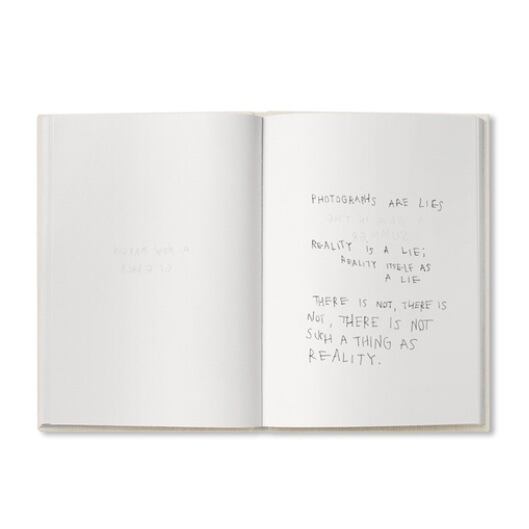 PHOTOGRAPHS ARE LIES
REALITY IS A LIE;
REALITY ITSELF AS
A LIE
THERE IS NOT, THERE IS
NOT, THERE IS NOT
SUCH A THING AS
REALITY.